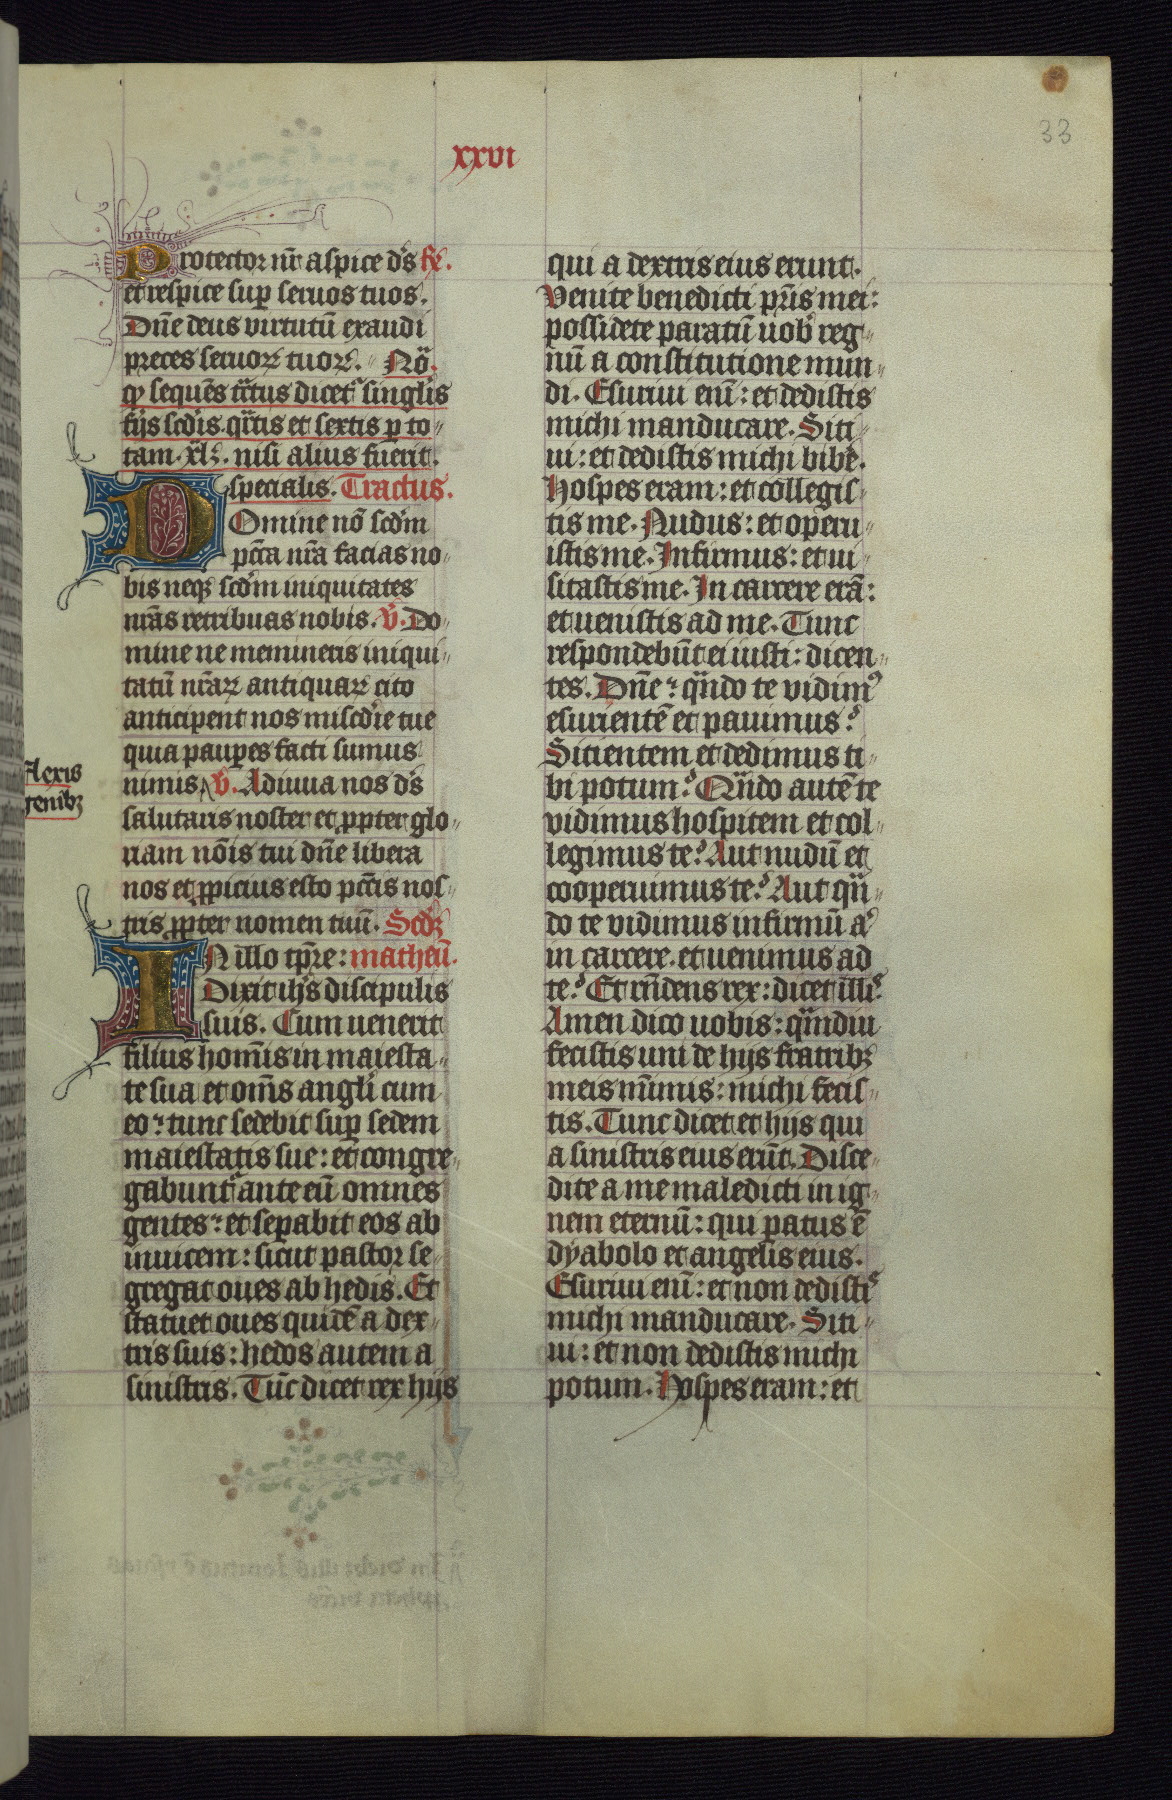 33
xxvi
Protector nr̄ aspice ds̄ fe.
et respice sup seruos tuos.
Dn̄e deus virtutū exaudi
preces seruoꝝ tuoꝝ. No.
sequēs tc̄tus dicet singlis
fijs scdis. qr̄tis et sextis p to
tam. xlꝫ. nisi alius fuerit.
specialis. Tractus.
Domine nō scdm
pctā nrā facias no
bis neqꝫ scdm iniquitates
nrās retribuas nobis. v̄. Do
mine ne memineris iniqui
tatū nrāꝝ antiquaꝝ cito
anticipent nos miscdie tue
quia paupes facti sumus
flexis
nimis v̄. Adiuua nos ds̄
genibꝫ
salutaris noster et ꝓpter glo
riam nōis tui dn̄e libera
nos et ꝓpicius esto pctīs nos
tris ꝓpter nomen tuū. Scdꝫ
In illo tpr̄e: matheū.
Dixit ihs̄ discipulis
suis. Cum uenerit
filius homīs in maiesta
te sua et omēs angli cum
eo: tunc sedebit sup sedem
maiestatis sue: et congre
gabuntʳ ante eū omnes
gentes: et sepabit eos ab
inuicem: sicut pastor se
gregat oues ab hedis. Et
statuet oues quidē a dex
tris suis: hedos autem a
sinistris. Tūc dicet rex hijs
qui a dextris eius erunt.
Venite benedicti pr̄is mei:
possidete paratū uob reg
nū a constitutione mun
di. Esuriui enī: et dedistis
michi manducare. Siti
ui: et dedistis michi bibe.
Hospes eram: et collegis
tis me. Nudus: et operu
istis me. Infirmus: et ui
sitastis me. In carcere erā:
et uenistis ad me. Tunc
respondebūt ei iusti: dicen
tes. Dn̄e: qn̄do te vidimꝰ
esurientē et pauimus?
Sitientem et dedimus ti
bi potum? Qn̄do autē te
vidimus hospitem et col
legimus te? Aut nudū et
cooperuimus te? Aut qn̄
do te vidimus infirmū aᵗ
in carcere. et uenimus ad
te? Et rn̄dens rex: dicet illis.
Amen dico uobis: qm̄diu
fecistis uni de hijs fratribꝫ
meis mīimis: michi fecis
tis. Tunc dicet et hijs qui
a sinistris eius erūt. Disce
dite a me maledicti in ig
nem eternū: qui patus ē
dyabolo et angelis eius.
Esuriui enī: et non dedistis
michi manducare. Siti
ui: et non dedistis michi
potum. Hospes eram: et